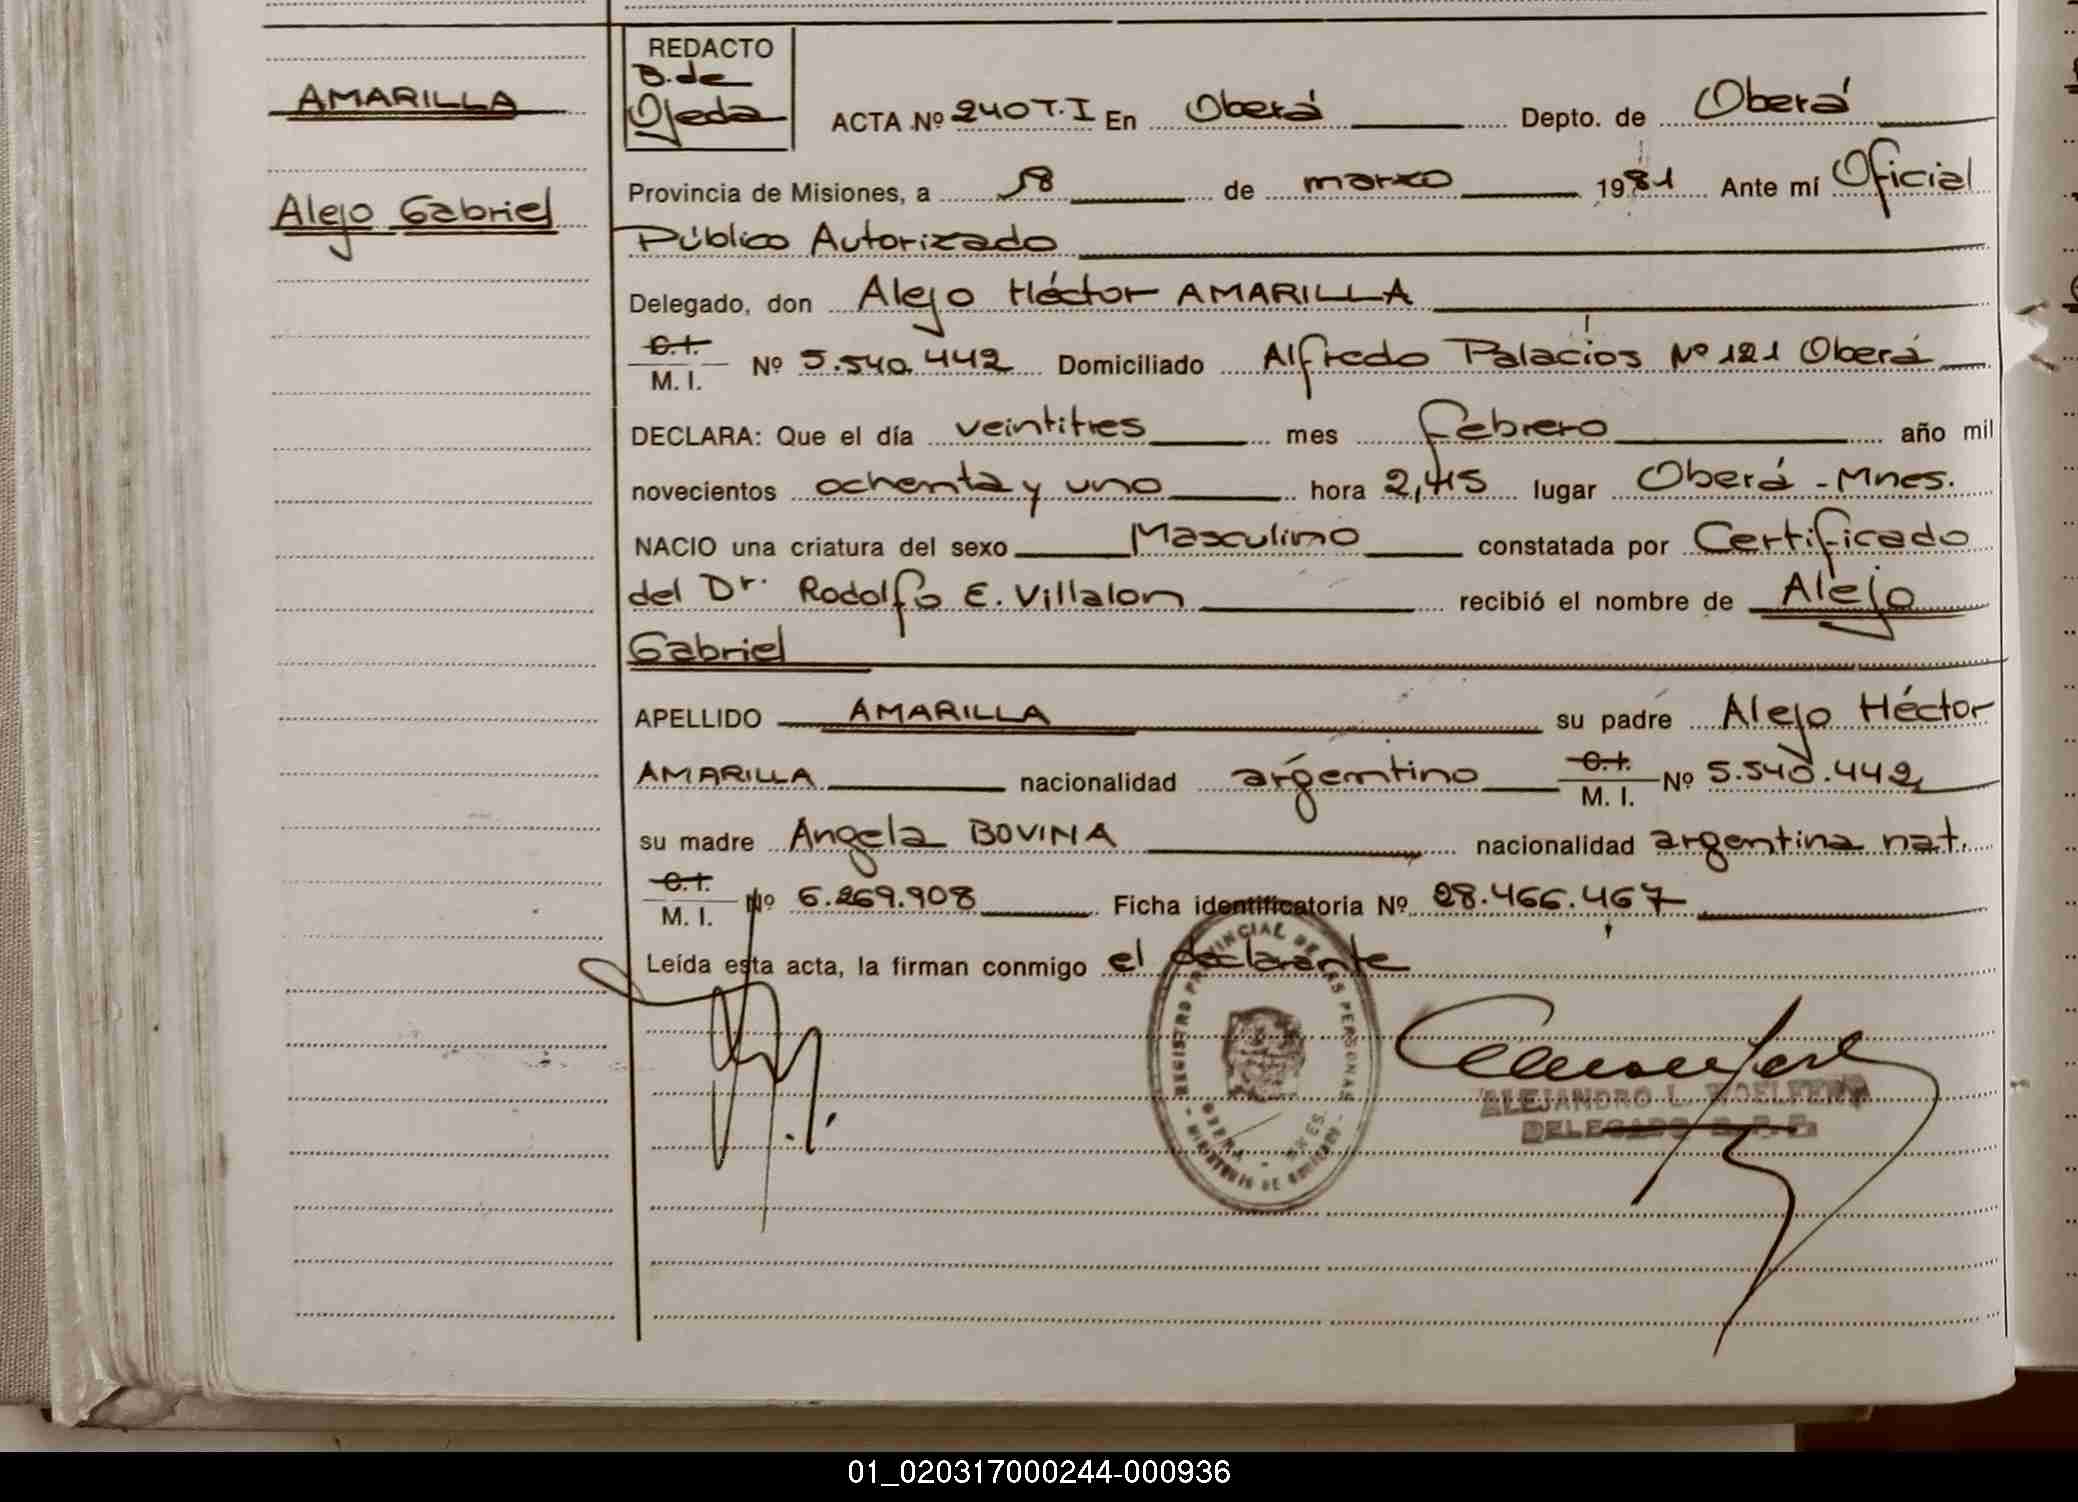 AMARILLA
Alejo Gabriel
REDACTO
B. de
Ojeda
ACTA Nº 240 T.I En Oberá Depto. de Oberá
Provincia de Misiones, a 18 de marzo 1981 Ante mí Oficial
Público Autorizado
Delegado, don Alejo Héctor AMARILLA
C.I.
M. I. Nº 5.540.442 Domiciliado Alfredo Palacios Nº 121 Oberá
DECLARA: Que el día veintitres mes febrero año mil
novecientos ochenta y uno hora 2,45 lugar Oberá - Mnes.
NACIO una criatura del sexo Masculino constatada por Certificado
del Dr. Rodolfo E. Villalon recibió el nombre de Alejo
Gabriel
APELLIDO AMARILLA su padre Alejo Héctor
AMARILLA nacionalidad argentino C.I. M. I. Nº 5.540.442
su madre Angela BOVINA nacionalidad argentina nat.
C.I.
M. I. Nº 6.269.908 Ficha identificatoria Nº 28.466.467
Leída esta acta, la firman conmigo el declarante
REGISTRO PROVINCIAL DE LAS PERSONAS
OBERA - MNES.
MINISTERIO DE GOBIERNO
ALEJANDRO L.
DELEGADO
01_020317000244-000936